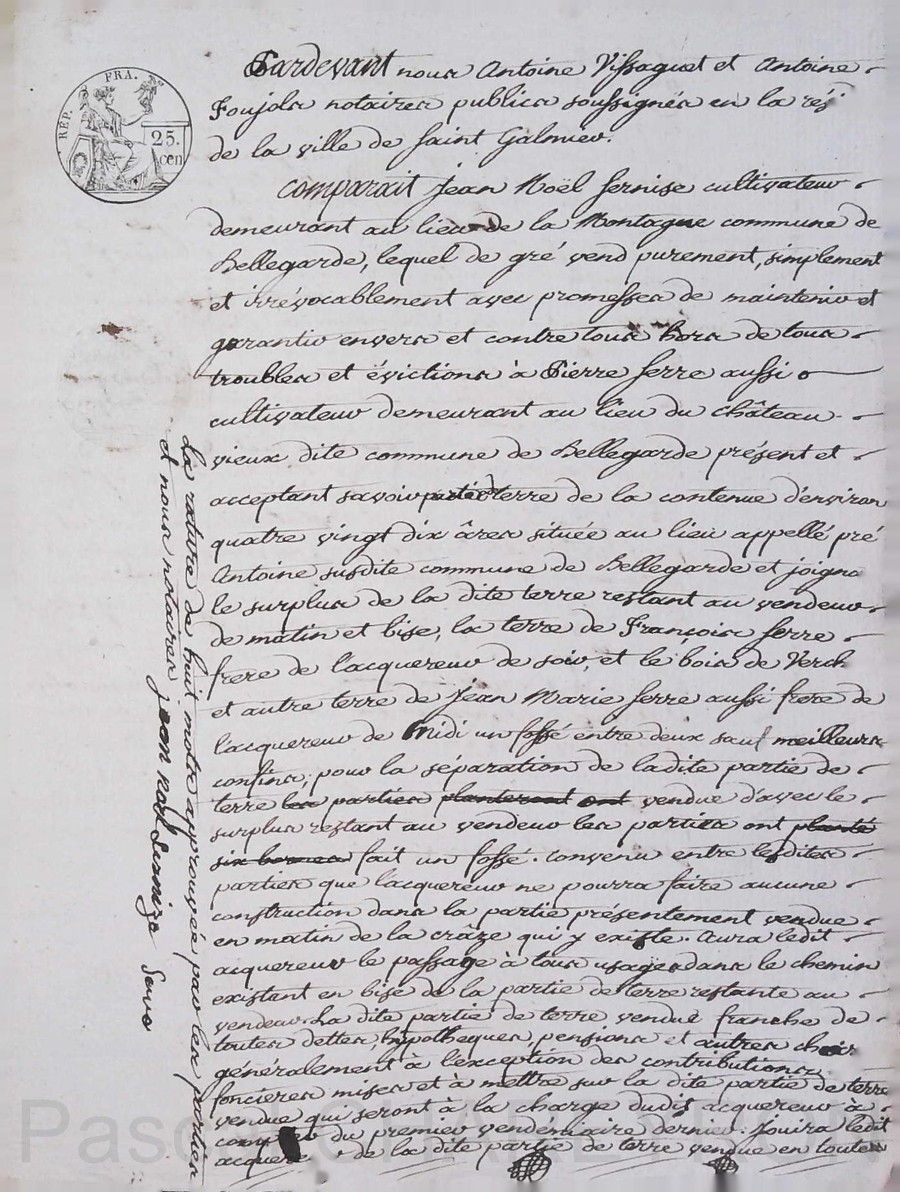 RÉP. FRA.
25.
cen
Pardevant nous Antoine Vissaguet et Antoine
Foujols notaires publics soussignés en la rés.
de la ville de Saint Galmier.
Comparait Jean Noël Sernise cultivateur
demeurant au lieu de la Montagne commune de
Bellegarde, lequel de gré vend purement, simplement
et irrévocablement avec promesses de maintenir et
garantir envers et contre tous hors de tous
troubles et évictions à Pierre Serre aussi
cultivateur demeurant au lieu du château
vieux dite commune de Bellegarde présent et
acceptant savoir partie terre de la contenue d'environ
quatre vingt dix âres située au lieu appellé pré
Antoine susdite commune de Bellegarde et joigna
le surplus de la dite terre restant au vendeur
de matin et bise, la terre de François Serre
frere de l'acquereur de soir, et le bois de Verch
et autre terre de Jean Marie Serre aussi frere de
l'acquereur de Midi un fossé entre deux sauf meilleurs
confins; pour la séparation de ladite partie de
terre les parties planteront ont vendue d'avec le
surplus restant au vendeur les parties ont planté
six bornes fait un fossé. convenu entre lesdites
parties que l'acquereur ne pourra faire aucune
construction dans la partie présentement vendue
en matin de la crâze qui y existe. Aura ledit
acquereur le passage à tous usages dans le chemin
existant en bise de la partie de terre restante au
vendeur. La dite partie de terre vendue franche de
toutes dettes, hypotheques, pensions et autres
généralement à l'exception des contributions
foncieres mises et à mettre sur la dite partie de terre
vendue qui seront à la charge dudit acquereur à
du premier vendémiaire dernier. Jouira ledit
acquereur de la dite partie de terre vendue en toutes
La rature de huit mots approuvée par les parties
et nous notaires jean noel Sernize Serre